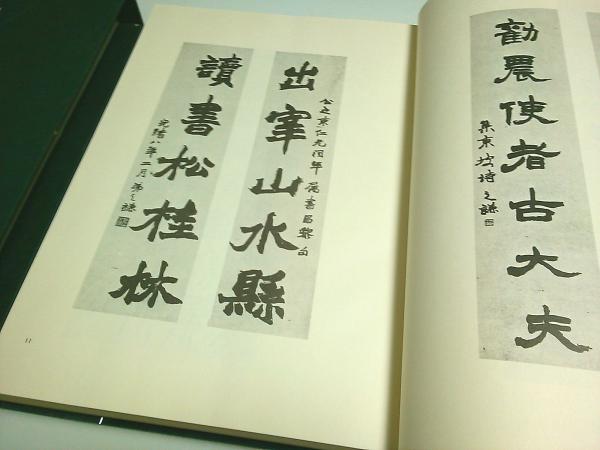 勸農使者古大夫
集東坡詩之謙
仁兄同年屬書昌黎句
出宰山水縣
讀書松桂林
光緒八年二月弟之謙
11